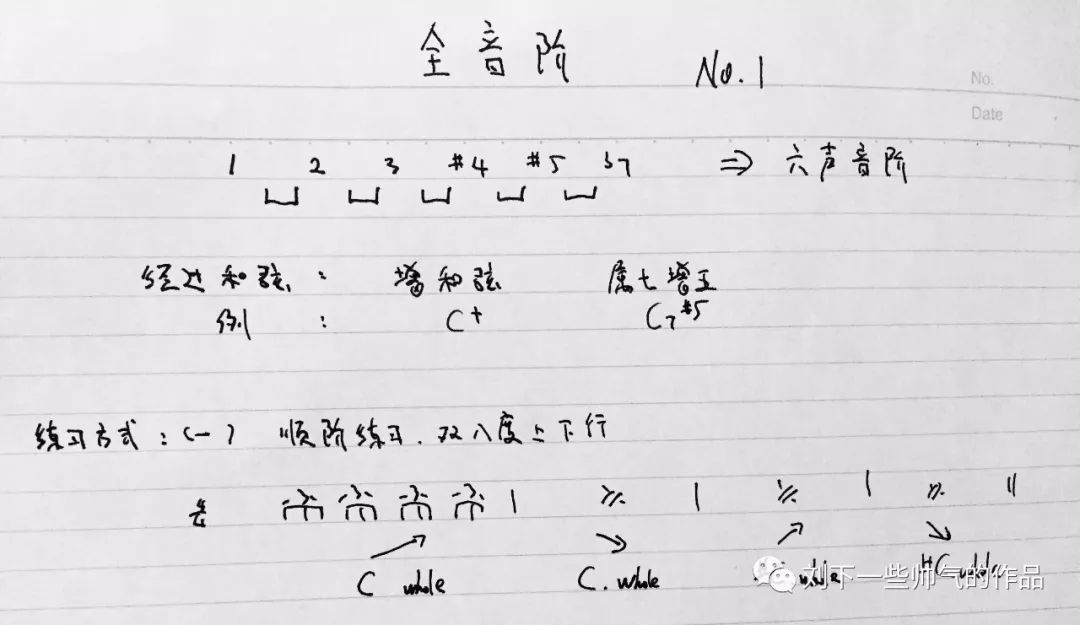 全音阶 No.1
No.
Date
1 2 3 #4 #5 b7 ⇒ 六声音阶
经过和弦： 增和弦 属七增五
例： C+ C7#5
练习方式：(一) 顺阶练习．双八度上下行
3 3 3 3 | ٪ | ٪ | ٪ ||
C whole C. whole whole #C whole
刘下一些帅气的作品